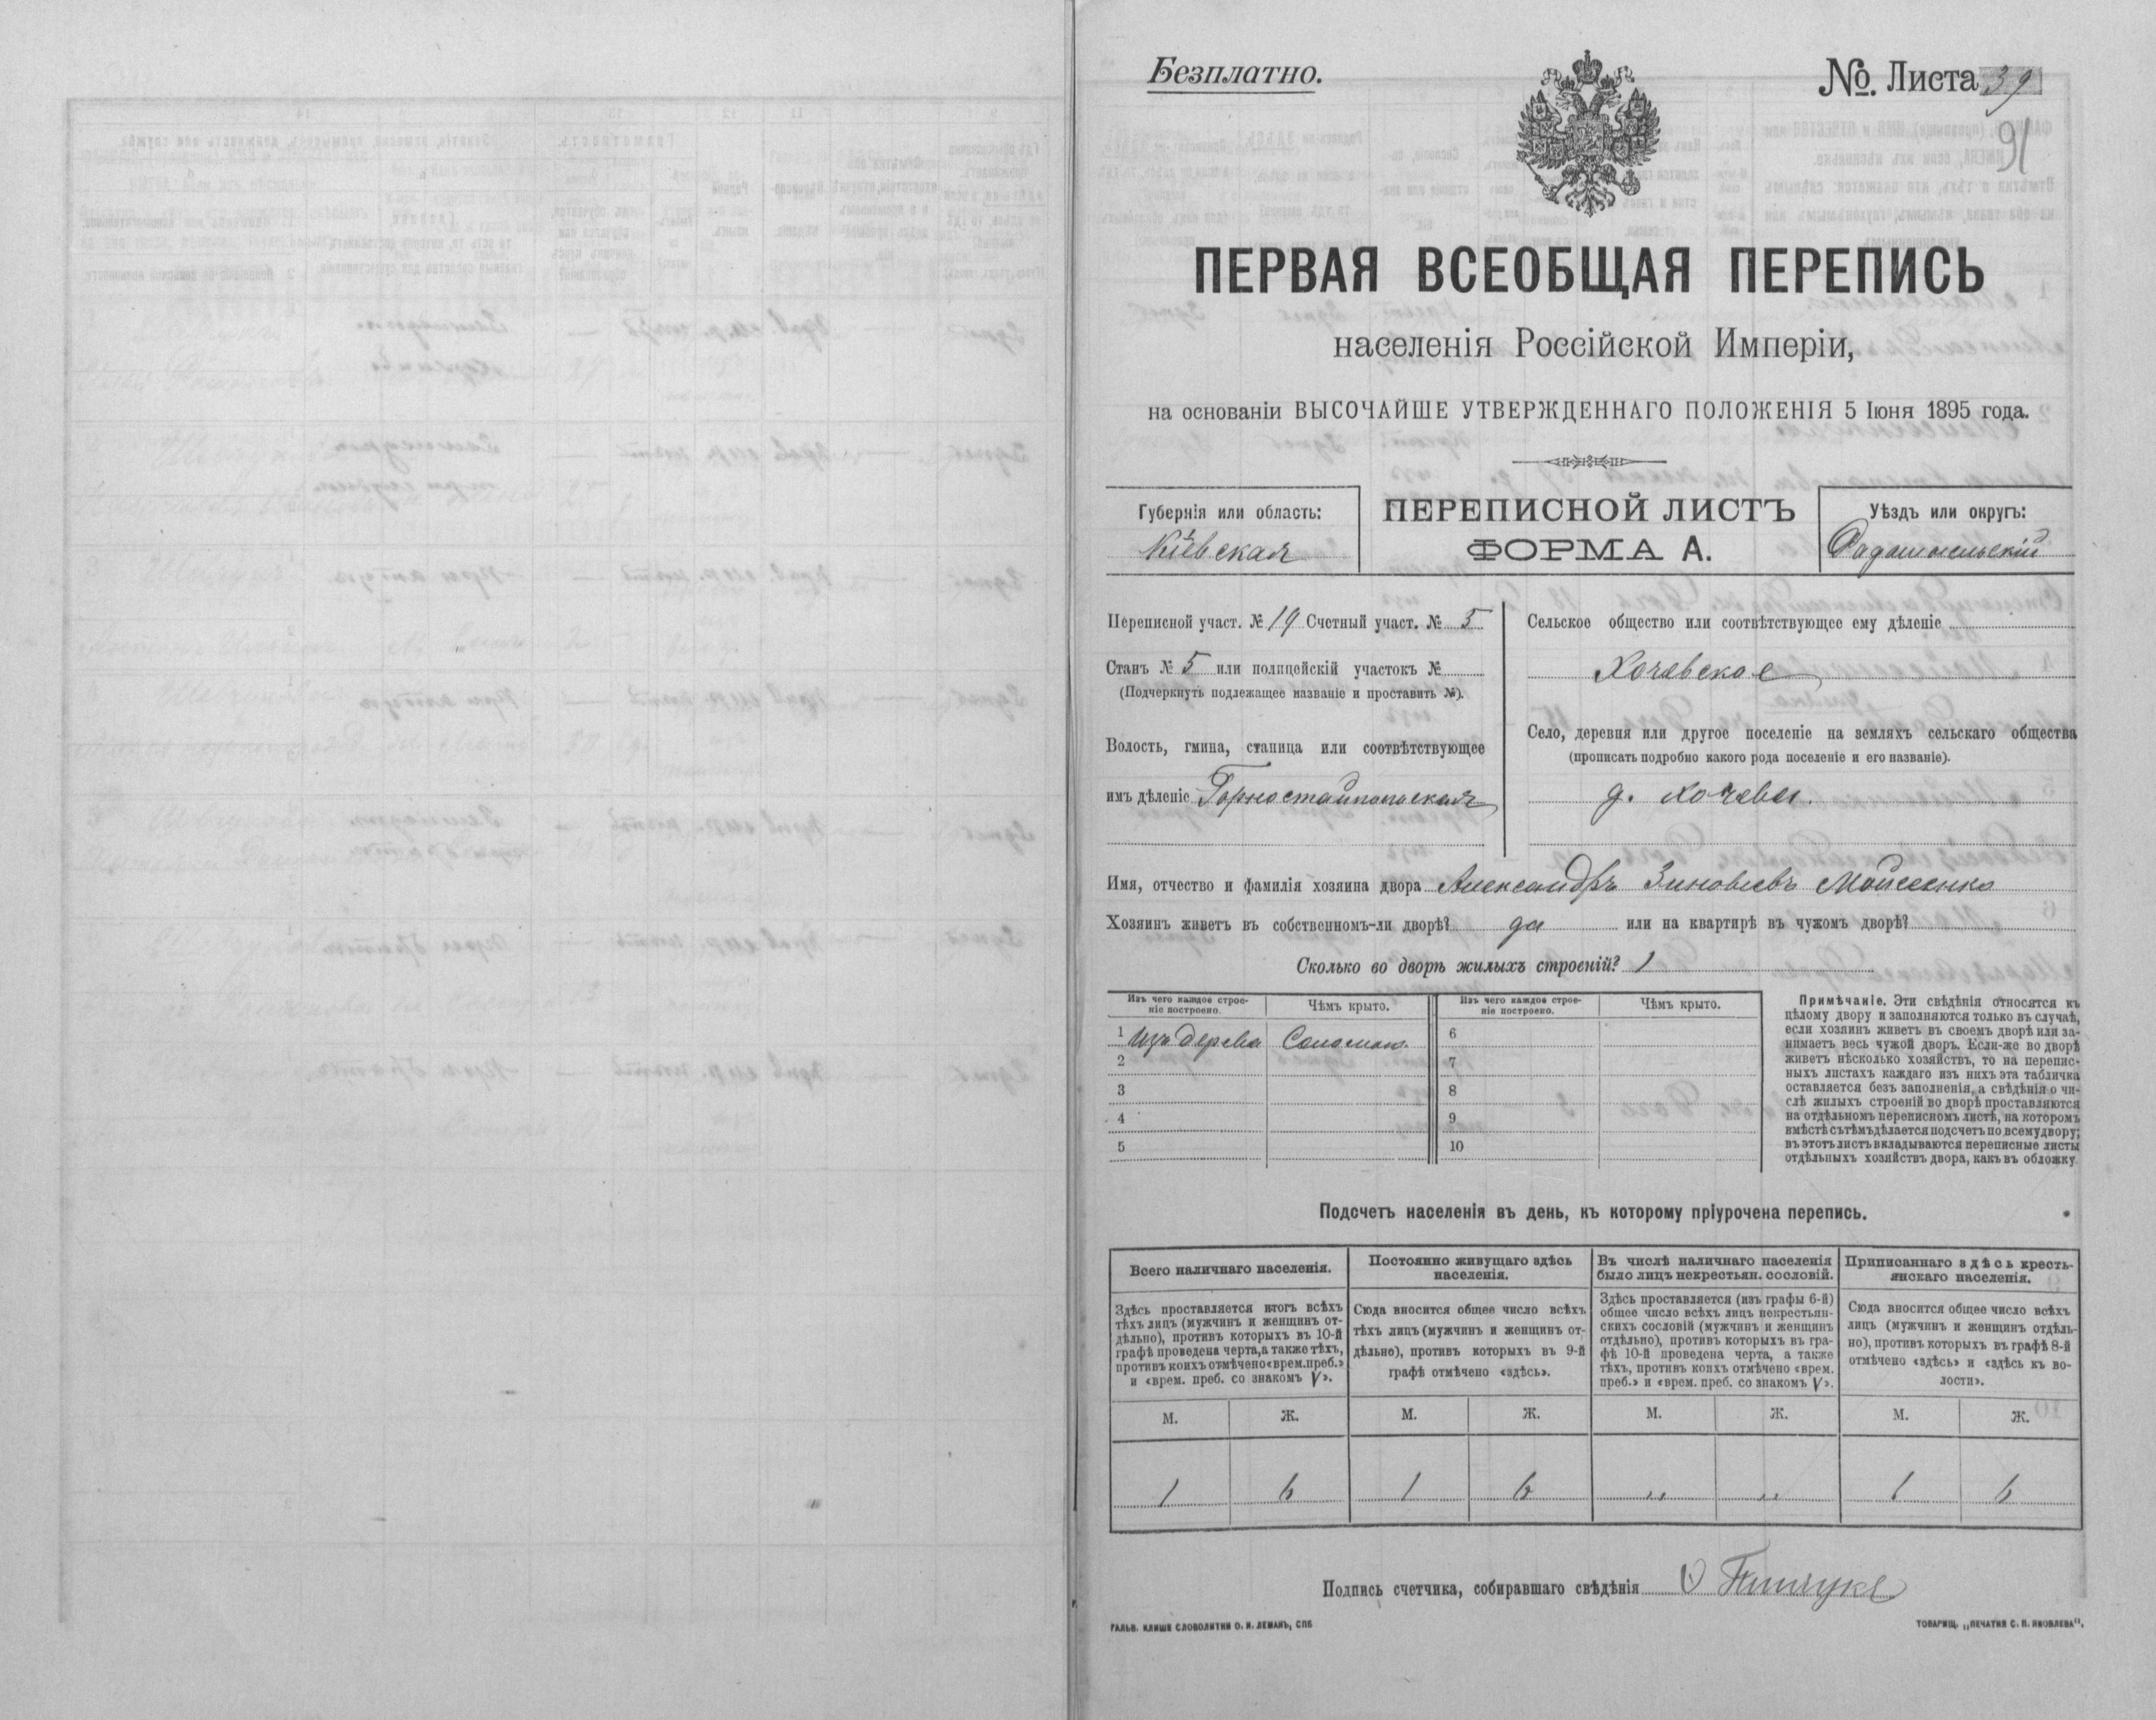 Безплатно.
№ Листа 39
91
ПЕРВАЯ ВСЕОБЩАЯ ПЕРЕПИСЬ
населенія Россійской Имперіи,
на основаніи ВЫСОЧАЙШЕ УТВЕРЖДЕННАГО ПОЛОЖЕНІЯ 5 Іюня 1895 года.
Губернія или область:
Кіевская
ПЕРЕПИСНОЙ ЛИСТЪ
ФОРМА А.
Уѣздъ или округъ:
Радомысльскій
Переписной участ. № 19 Счетный участ. № 5
Станъ № 5 или полицейскій участокъ №
(Подчеркнуть подлежащее названіе и проставить №).
Волость, гмина, станица или соотвѣтствующее
имъ дѣленіе Горностайпольская
Сельское общество или соотвѣтствующее ему дѣленіе
Хочевское
Село, деревня или другое поселеніе на земляхъ сельскаго общества
(прописать подробно какого рода поселеніе и его названіе).
д. Хочева.
Имя, отчество и фамилія хозяина двора Александръ Зиновіевъ Мойсеенко
Хозяинъ живетъ въ собственномъ-ли дворѣ? да или на квартирѣ въ чужомъ дворѣ?
Сколько во дворѣ жилыхъ строеній? 1
Изъ чего каждое строе-
ніе построено.
Чѣмъ крыто.
Изъ чего каждое строе-
ніе построено.
Чѣмъ крыто.
1 Изъ дерева Соломою 6
2 7
3 8
4 9
5 10
Примѣчаніе. Эти свѣдѣнія относятся къ
цѣлому двору и заполняются только въ случаѣ,
если хозяинъ живетъ въ своемъ дворѣ или за-
нимаетъ весь чужой дворъ. Если-же во дворѣ
живетъ нѣсколько хозяйствъ, то на перепис-
ныхъ листахъ каждаго изъ нихъ эта табличка
оставляется безъ заполненія, а свѣдѣнія о чи-
слѣ жилыхъ строеній во дворѣ проставляются
на отдѣльномъ переписномъ листѣ, на которомъ
вмѣстѣ съ тѣмъ дѣлается подсчетъ по всему двору;
въ этотъ листъ вкладываются переписные листы
отдѣльныхъ хозяйствъ двора, какъ въ обложку
Подсчетъ населенія въ день, къ которому пріурочена перепись.
Всего наличнаго населенія.
Здѣсь проставляется итогъ всѣхъ
тѣхъ лицъ (мужчинъ и женщинъ от-
дѣльно), противъ которыхъ въ 10-й
графѣ проведена черта, а также тѣхъ,
противъ коихъ отмѣчено «врем. преб.»
и «врем. преб. со знакомъ V».
Постоянно живущаго здѣсь
населенія.
Сюда вносится общее число всѣхъ
тѣхъ лицъ (мужчинъ и женщинъ от-
дѣльно), противъ которыхъ въ 9-й
графѣ отмѣчено «здѣсь».
Въ числѣ наличнаго населенія
было лицъ некрестьян. сословій.
Здѣсь проставляется (изъ графы 6-й)
общее число всѣхъ лицъ некрестьян-
скихъ сословій (мужчинъ и женщинъ
отдѣльно), противъ которыхъ въ гра-
фѣ 10-й проведена черта, а также
тѣхъ, противъ коихъ отмѣчено «врем.
преб.» и «врем. преб. со знакомъ V».
Приписаннаго здѣсь кресть-
янскаго населенія.
Сюда вносится общее число всѣхъ
лицъ (мужчинъ и женщинъ отдѣль-
но), противъ которыхъ въ графѣ 8-й
отмѣчено «здѣсь» и «здѣсь къ во-
лости».
М. Ж. М. Ж. М. Ж. М. Ж.
1 6 1 6 „ „ 1 6
Подпись счетчика, собиравшаго свѣдѣнія
ГАЛЬВ. КЛИШЕ СЛОВОЛИТНИ О. И. ЛЕМАНЪ, СПБ
ТОВАРИЩ. „ПЕЧАТНЯ С. П. ЯКОВЛЕВА".